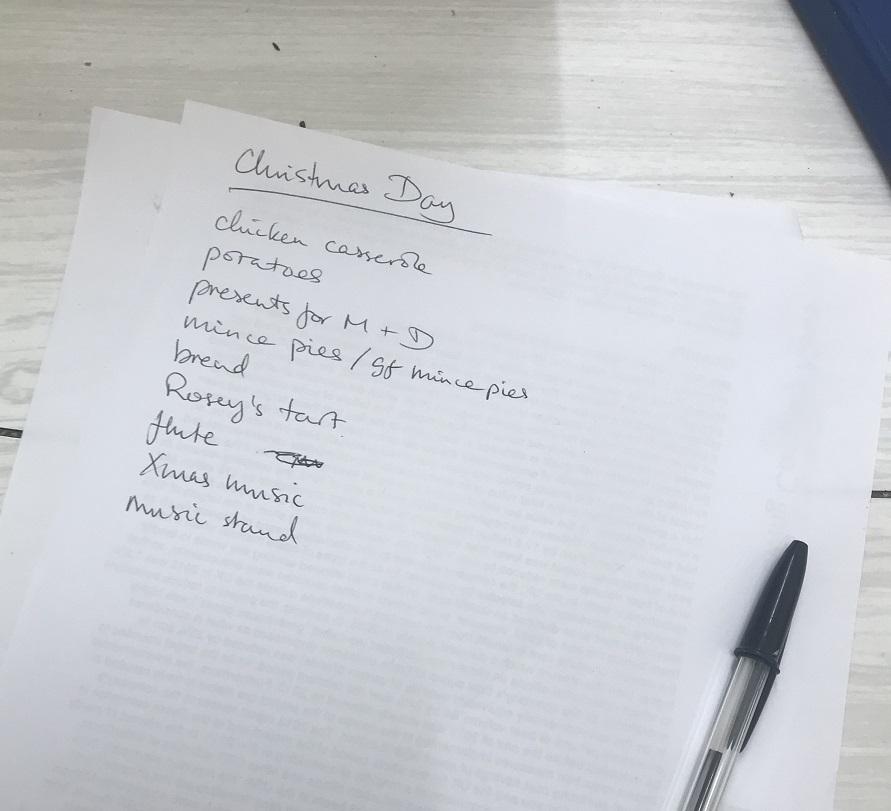 Christmas Day
chicken casserole
potatoes
presents for M + D
mince pies / gf mince pies
bread
Rosey's tart
flute
Xmas music
music stand